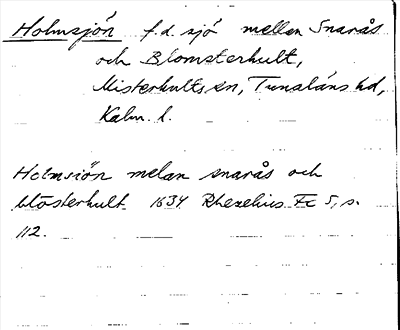 Holmsjön f.d. sjö mellan Snarås
och Blomsterhult,
Misterhults sn, Tunaläns hd,
Kalm. l.
Holmsiön melan snarås och
blösterhult 1634 Rhezelius Fc 5, s.
112.